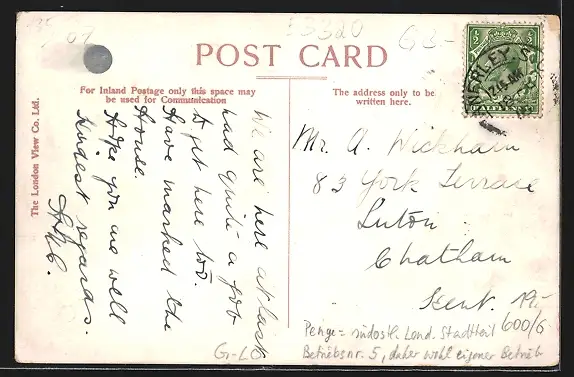 £3320
G3-
07
POST CARD
For Inland Postage only this space may
be used for Communication
The address only to be
written here.
The London View Co. Ltd.
We are here at last
had quite a job
to get here too.
Have marked the
House.
Hope you are well
Kindest regards.
Mr. A. Wickham
83 York Terrace
Luton
Chatham
Kent.
19,-
600/6
Penge = südostl. Lond. Stadtteil
Betriebsnr. 5, daher wohl eigener Betrieb
G-LO